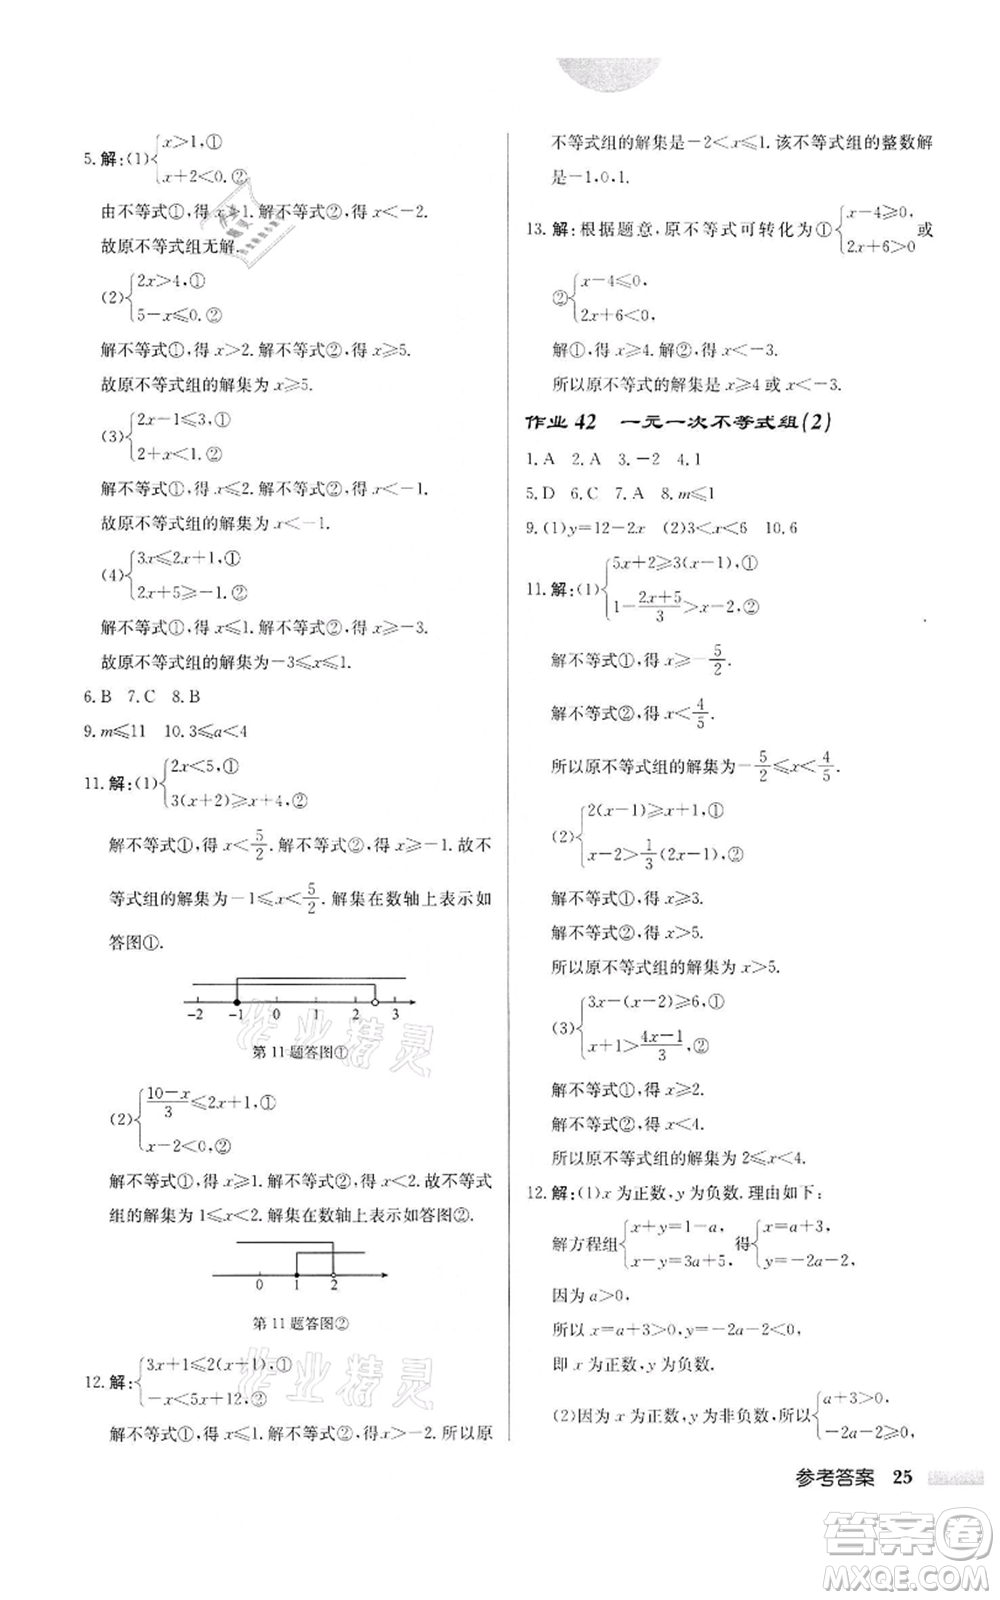 5. 解:(1){x>1,①
x+2<0.②
由不等式①,得 x>1. 解不等式②,得 x<-2.
故原不等式组无解.
(2){2x>4,①
5-x≤0.②
解不等式①,得 x>2. 解不等式②,得 x≥5.
故原不等式组的解集为 x≥5.
(3){2x-1≤3,①
2+x<1.②
解不等式①,得 x≤2. 解不等式②,得 x<-1.
故原不等式组的解集为 x<-1.
(4){3x≤2x+1,①
2x+5≥-1.②
解不等式①,得 x≤1. 解不等式②,得 x≥-3.
故原不等式组的解集为-3≤x≤1.
6. B 7. C 8. B
9. m≤11 10. 3≤a<4
11. 解:(1){2x<5,①
3(x+2)≥x+4,②
解不等式①,得 x<5/2. 解不等式②,得 x≥-1. 故不
等式组的解集为-1≤x<5/2. 解集在数轴上表示如
答图①.
-2 -1 0 1 2 3
第 11 题答图①
(2){(10-x)/3≤2x+1,①
x-2<0,②
解不等式①,得 x≥1. 解不等式②,得 x<2. 故不等式
组的解集为 1≤x<2. 解集在数轴上表示如答图②.
0 1 2
第 11 题答图②
12. 解:{3x+1≤2(x+1),①
-x<5x+12,②
解不等式①,得 x≤1. 解不等式②,得 x>-2. 所以原
不等式组的解集是-2<x≤1. 该不等式组的整数解
是-1,0,1.
13. 解:根据题意,原不等式可转化为①{x-4≥0,
2x+6>0 或
②{x-4≤0,
2x+6<0,
解①,得 x≥4. 解②,得 x<-3.
所以原不等式的解集是 x≥4 或 x<-3.
作业 42 一元一次不等式组(2)
1. A 2. A 3. -2 4. 1
5. D 6. C 7. A 8. m≤1
9. (1)y=12-2x (2)3<x<6 10. 6
11. 解:(1){5x+2≥3(x-1),①
1-(2x+5)/3>x-2,②
解不等式①,得 x≥-5/2.
解不等式②,得 x<4/5.
所以原不等式组的解集为-5/2≤x<4/5.
(2){2(x-1)≥x+1,①
x-2>1/3(2x-1),②
解不等式①,得 x≥3.
解不等式②,得 x>5.
所以原不等式组的解集为 x>5.
(3){3x-(x-2)≥6,①
x+1>(4x-1)/3,②
解不等式①,得 x≥2.
解不等式②,得 x<4.
所以原不等式组的解集为 2≤x<4.
12. 解:(1)x 为正数,y 为负数. 理由如下:
解方程组{x+y=1-a,
x-y=3a+5, 得{x=a+3,
y=-2a-2.
因为 a>0,
所以 x=a+3>0,y=-2a-2<0,
即 x 为正数,y 为负数.
(2)因为 x 为正数,y 为非负数,所以{a+3>0,
-2a-2≥0,
参考答案 25
作业精灵
作业精灵
答案卷
www.mxqe.com